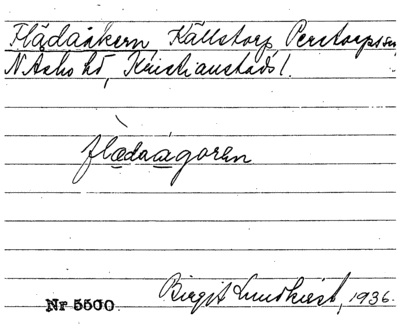 Flädaåkern, Källstorp Perstorps sn,
N Åsbo hd, Kristianstads l.
flædaågoren
Nr 5500 Birgit Lundkvist, 1936.